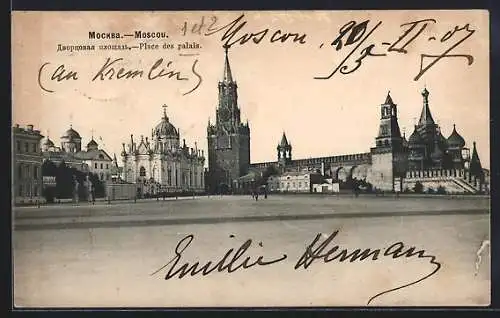 Москва.—Moscou.
Дворцовая площадь.—Place des palais.
1 et 2 Moscou, 20/5-II-07
(au Kremlin)
Emilie Hermann